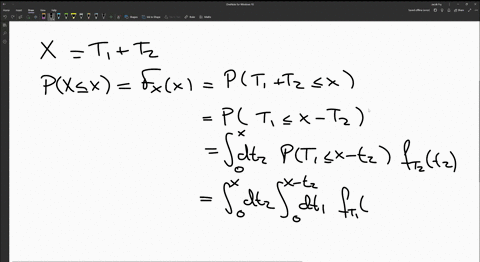 X = T₁ + T₂
P(X ≤ x) = F_X(x) = P(T₁ + T₂ ≤ x)
= P(T₁ ≤ x - T₂)
= ∫₀ˣ dt₂ P(T₁ ≤ x - t₂) f_T₂(t₂)
= ∫₀ˣ dt₂ ∫₀ˣ⁻ᵗ² dt₁ f_T₁(